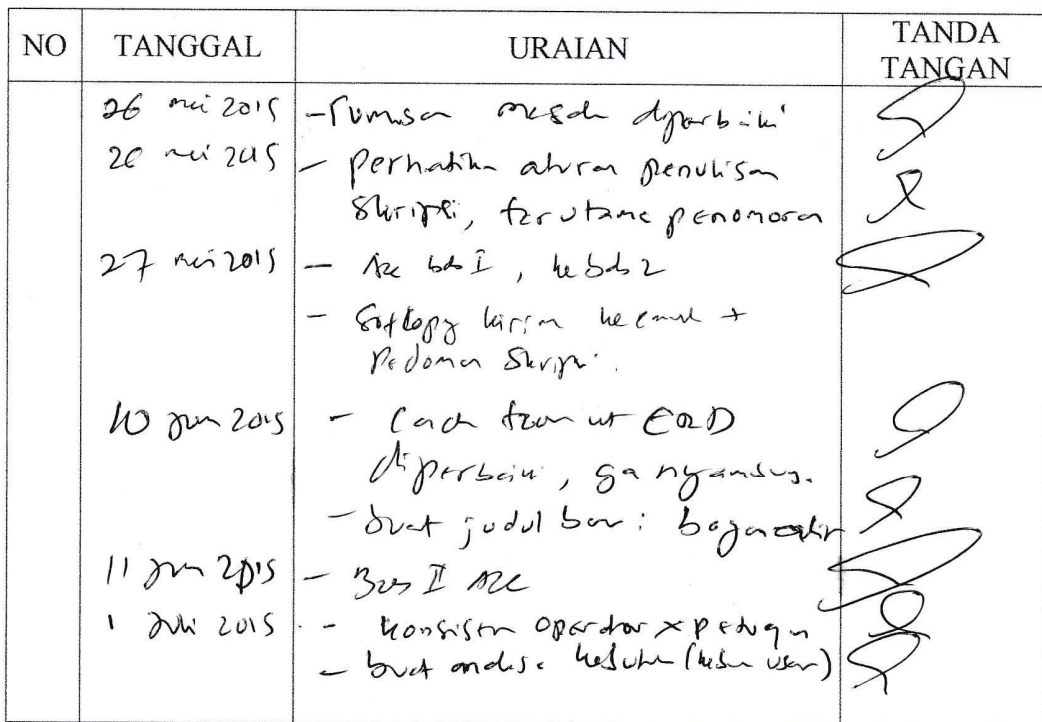 NO TANGGAL URAIAN TANDA TANGAN
26 mei 2015 - rumusan masalah diperbaiki
26 mei 2015 - perhatikan aturan penulisan
skripsi, terutama penomoran
27 mei 2015 - Acc bab I, ke bab 2
- Softkopy kirim ke email +
Pedoman Skripsi.
10 jun 2015 - ERD
diperbaiki, ga nyambung.
- buat judul baru: bagan alir
11 jun 2015 - Bab II Acc
1 Juli 2015 - konsisten operator x petugas
- buat analisa kebutuhan (kebu user)